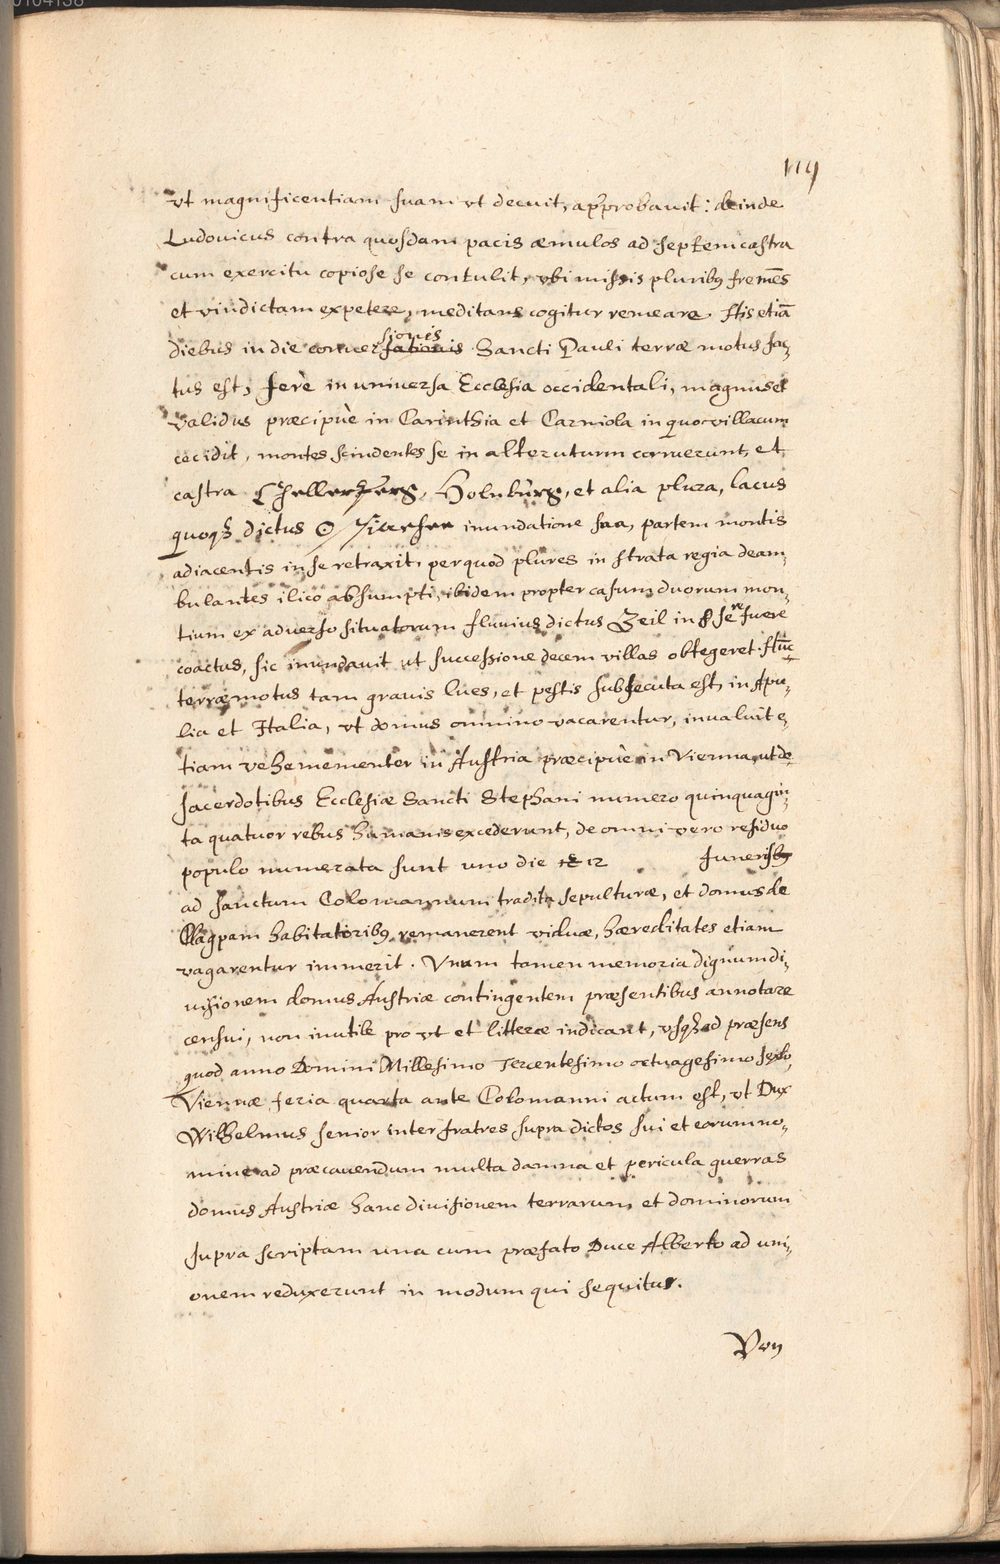 119
vt magnificentiam suam vt decuit, approbauit: deinde
Ludouicus contra quosdam pacis æmulos ad septemcastra
cum exercitu copiose se contulit, vbi missis pluribꝰ fremēs
et vindictam expetere, meditans cogitur remeare. Hisetiā
diebus in die conuersationis sionis Sancti Pauli terræ motus fac,
tus est, ferè in vniuersa Ecclesia occidentali, magnus et
validus præcipuè in Carinthia et Carniola in quo villacum
cecidit, montes scindentes se in alterutrum corruerunt, et
castra Chellerberg, Holnburg, et alia plura, lacus
quoqꝫ dictus inundatione sua, partem montis
adiacentis in se retraxit, per quod plures in strata regia deam,
bulantes ilico absumpti, ibidem propter casum duorum mon,
tium ex aduerso situatorum fluuius dictus Zeil in se fuere
coactus, sic inundauit ut successione decem villas obtegeret. Hūc
terræmotus tam grauis lues, et pestis subsecuta est, in Apu,
lia et Italia, vt domus omnino vacarentur, inualuit e,
tiam vehemementer in Austria præcipuè in Vienna, ut de
sacerdotibus Ecclesiæ Sancti Stephani numero quinquagin,
ta quatuor rebus humanis excederunt, de omni vero residuo
populo numerata sunt uno die 12 funeribꝰ
ad sanctum Colomannum tradita sepulturæ, et domus de
habitatoribꝰ remanerent viduæ, hæreditates etiam
vagarentur immerit. Vnum tamen memoria dignum di,
uisionem domus Austriæ contingentem præsentibus annotare
censui, non inutile pro vt et litteræ indicant, vsqꝫ ad præsens
quod anno Domini Millesimo Tercentesimo octuagesimo sexto,
Viennæ feria quarta ante Colomanni actum est, vt Dux
Wilhelmus senior inter fratres supra dictos sui et eorum no,
mine ad præcauendum multa damna et pericula guerras
domus Austriæ hanc diuisionem terrarum et dominorum
supra scriptam una cum præfato Duce Alberto ad uni,
onem reduxerunt in modum qui sequitur.
Von